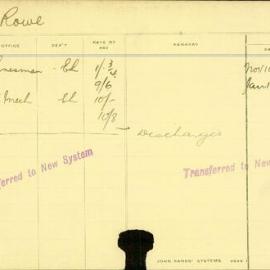 Rowe
OFFICE DEP'T RATE OF PAY REMARKS
nesman El 1/3 Nov 10
9/6 Jan 1
Mech El 10/-
10/8
Discharged
ferred to New System
Transferred to New
JOHN SANDS' SYSTEMS